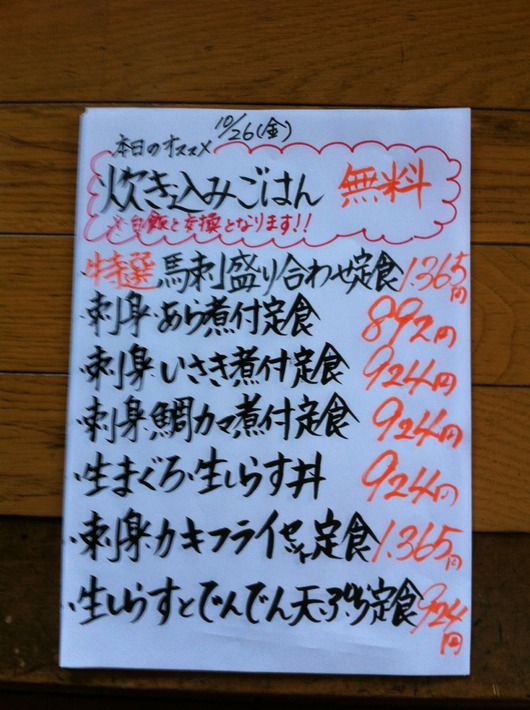 10/26(金)
本日のオススメ
炊き込みごはん 無料
※白飯と交換となります!!
特選 馬刺盛り合わせ定食 1.365円
・刺身・あら煮付定食 892円
・刺身・いさき煮付定食 924円
・刺身・鯛カマ煮付定食 924円
・生まぐろ・生しらす丼 924円
・刺身・カキフライ定食 1.365円
・生しらすとでんでん天ぷら定食 924円